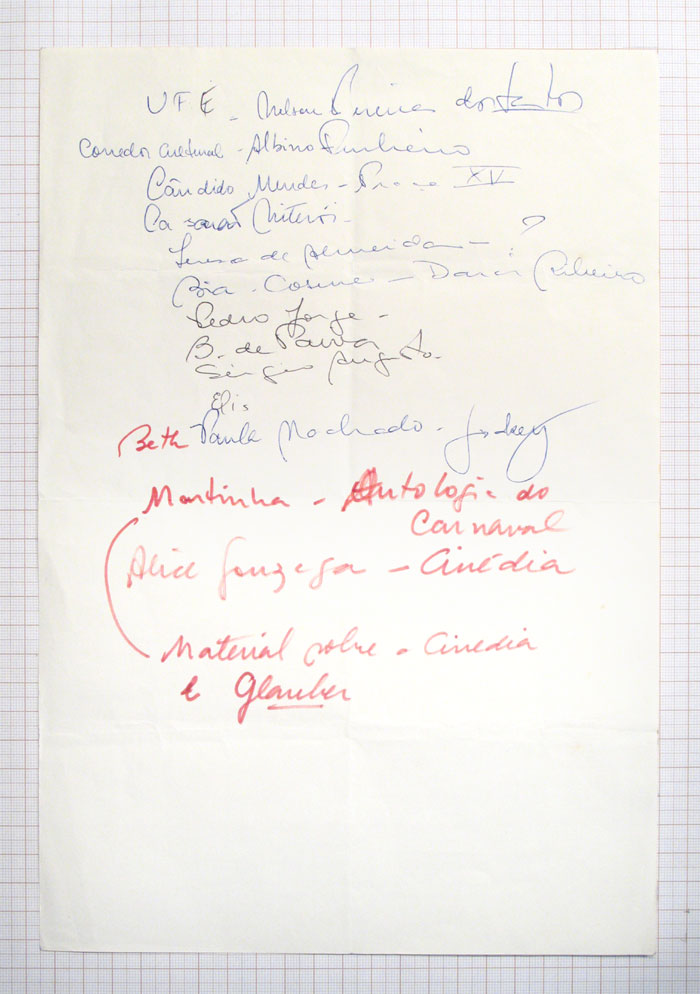 UFF - Nelson Pereira dos Santos
Corredor Cultural - Albino Pinheiro
Cândido Mendes - Praça XV
Casarão Niterói -
Teresa de Almeida - ?
Bia - Cosme - Darcy Ribeiro
Pedro Jorge -
B. de Paiva
Sérgio Augusto -
Elis
Beth Paula Machado -
Martinha - Antologia do
Carnaval
Alice Gonzaga - Cinédia
Material sobre - Cinedia
e Glauber